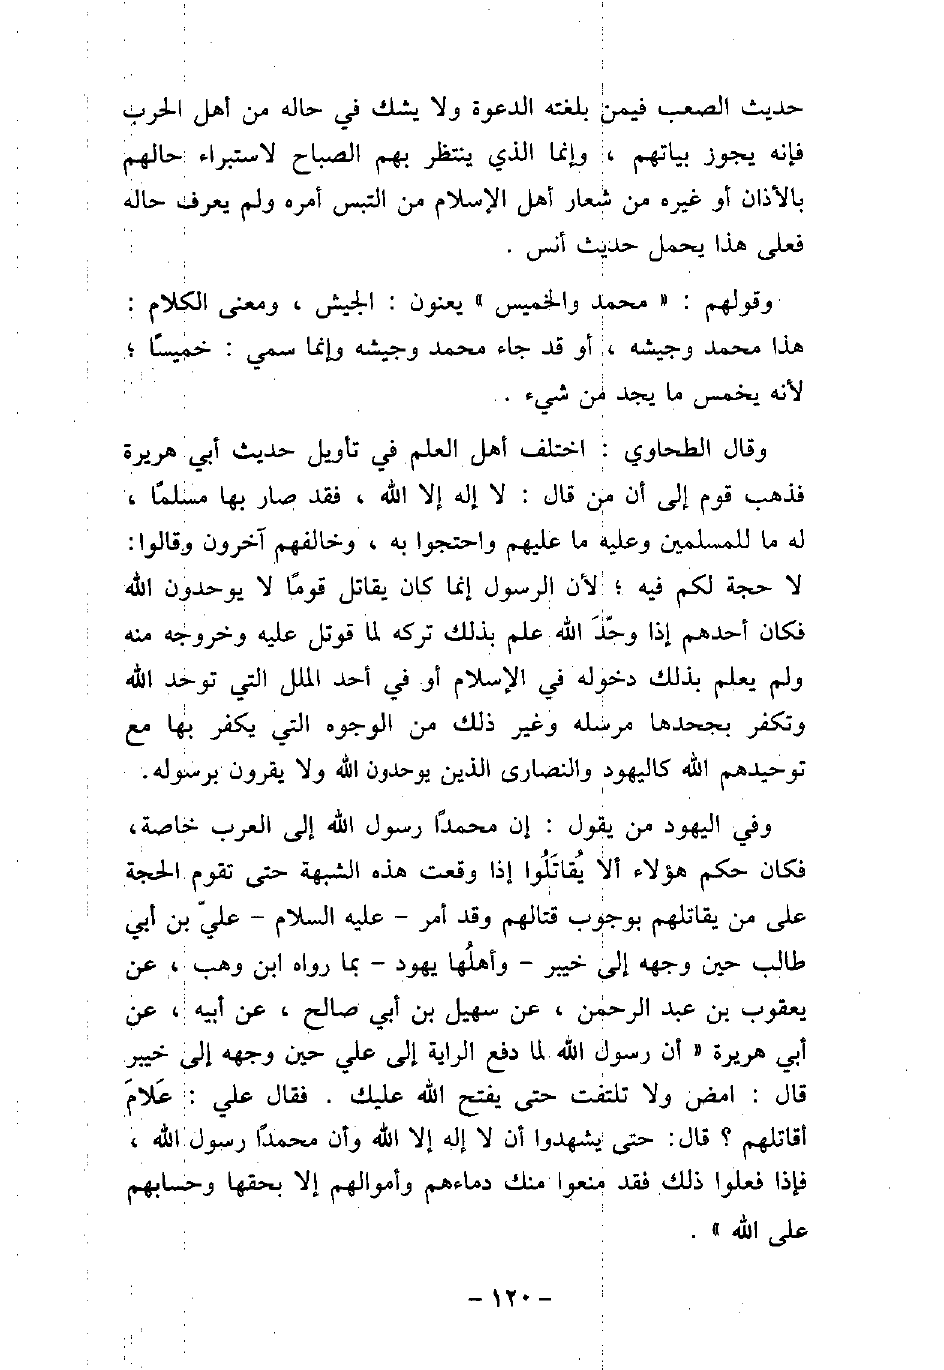 حديث الصعب فيمن بلغته الدعوة ولا يشك في حاله من أهل الحرب
فإنه يجوز بياتهم ، وإنما الذي ينتظر بهم الصباح لاستبراء حالهم
بالأذان أو غيره من شعار أهل الإسلام من التبس أمره ولم يعرف حاله
فعلى هذا يحمل حديث أنس .
وقولهم : « محمد والخميس » يعنون : الجيش ، ومعنى الكلام :
هذا محمد وجيشه ، أو قد جاء محمد وجيشه وإنما سمي : خميسًا ؛
لأنه يخمس ما يجد من شيء .
وقال الطحاوي : اختلف أهل العلم في تأويل حديث أبي هريرة
فذهب قوم إلى أن من قال : لا إله إلا الله ، فقد صار بها مسلمًا ،
له ما للمسلمين وعليه ما عليهم واحتجوا به ، وخالفهم آخرون وقالوا:
لا حجة لكم فيه ؛ لأن الرسول إنما كان يقاتل قومًا لا يوحدون الله
فكان أحدهم إذا وحَّدَ الله علم بذلك تركه لما قوتل عليه وخروجه منه
ولم يعلم بذلك دخوله في الإسلام أو في أحد الملل التي توحد الله
وتكفر بجحدها مرسله وغير ذلك من الوجوه التي يكفر بها مع
توحيدهم الله كاليهود والنصارى الذين يوحدون الله ولا يقرون برسوله.
وفي اليهود من يقول : إن محمدًا رسول الله إلى العرب خاصة،
فكان حكم هؤلاء ألا يُقاتَلُوا إذا وقعت هذه الشبهة حتى تقوم الحجة
على من يقاتلهم بوجوب قتالهم وقد أمر – عليه السلام – عليّ بن أبي
طالب حين وجهه إلى خيبر – وأهلُها يهود – بما رواه ابن وهب ، عن
يعقوب بن عبد الرحمن ، عن سهيل بن أبي صالح ، عن أبيه ، عن
أبي هريرة « أن رسول الله لما دفع الراية إلى علي حين وجهه إلى خيبر
قال : امض ولا تلتفت حتى يفتح الله عليك . فقال علي : عَلامَ
أقاتلهم ؟ قال: حتى يشهدوا أن لا إله إلا الله وأن محمدًا رسول الله ،
فإذا فعلوا ذلك فقد منعوا منك دماءهم وأموالهم إلا بحقها وحسابهم
على الله » .
– ١٢٠ –